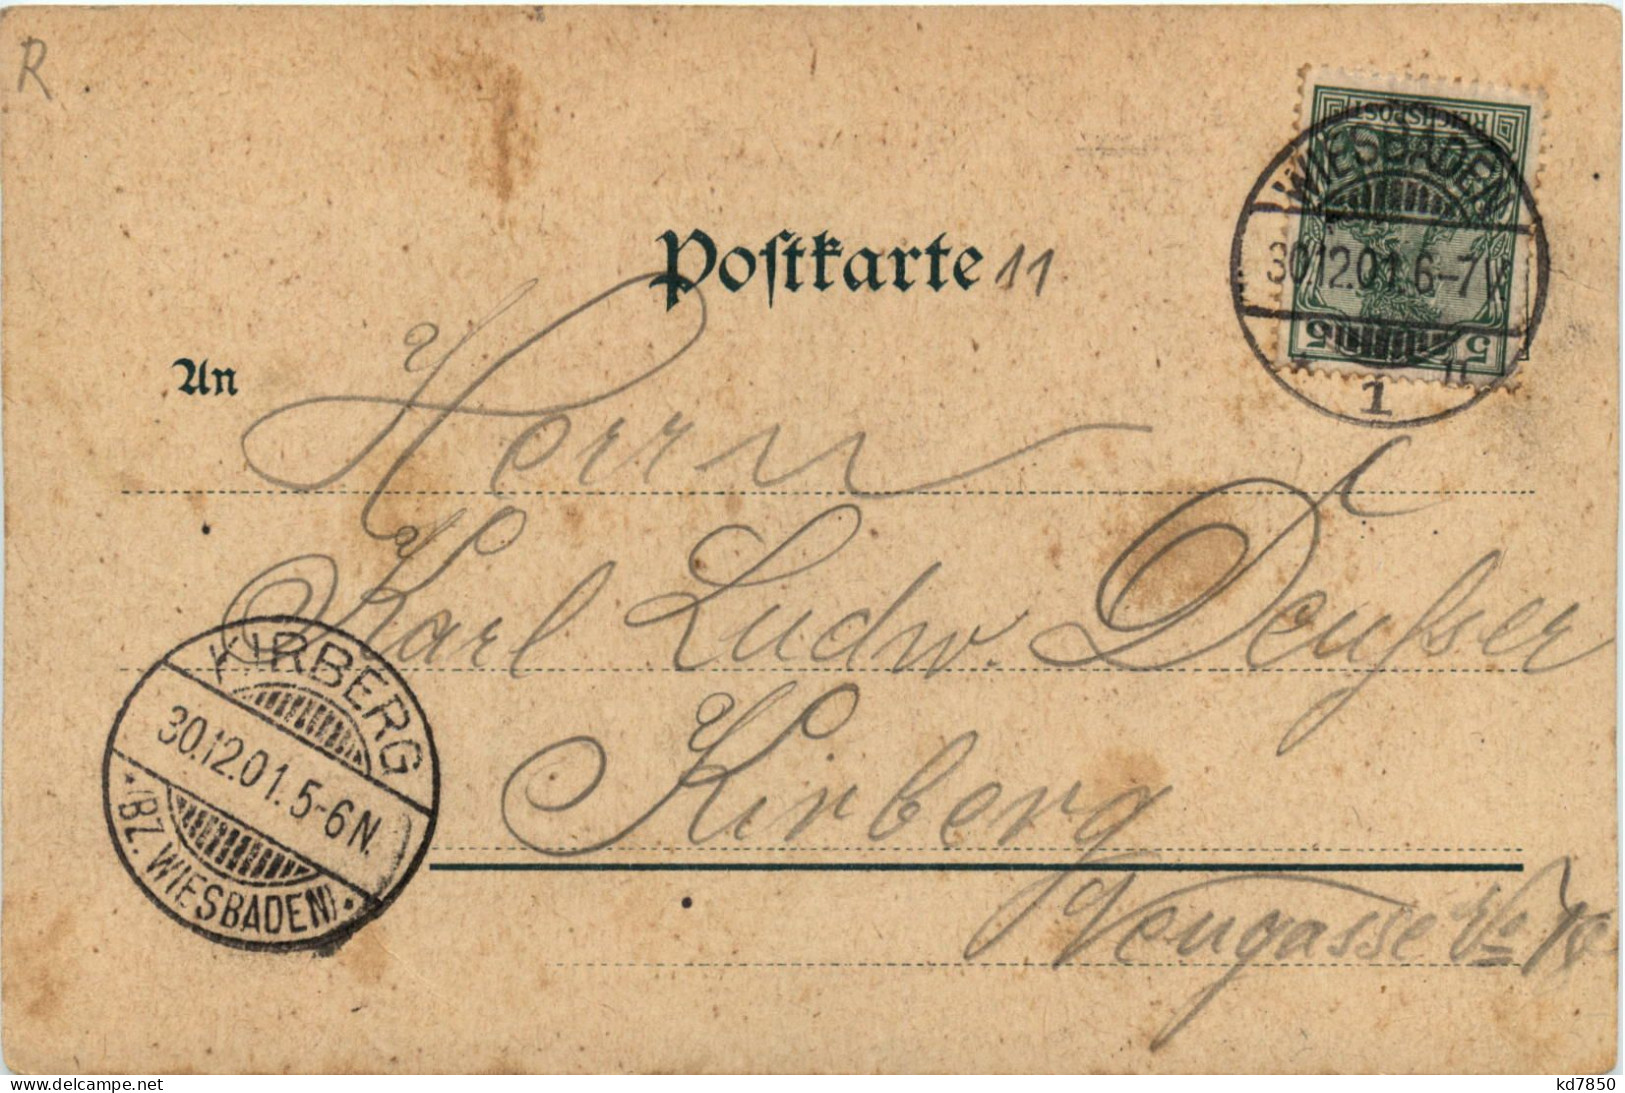 R.
REICHSPOST
WIESBADEN
30.12.01.6-7
5 5
1
Postkarte 11
An
Herrn
Karl Ludw. Deußer
Kirberg
Neugasse No
KIRBERG
30.12.01.5-6N.
*(BZ. WIESBADEN)*
www.delcampe.net
kd7850